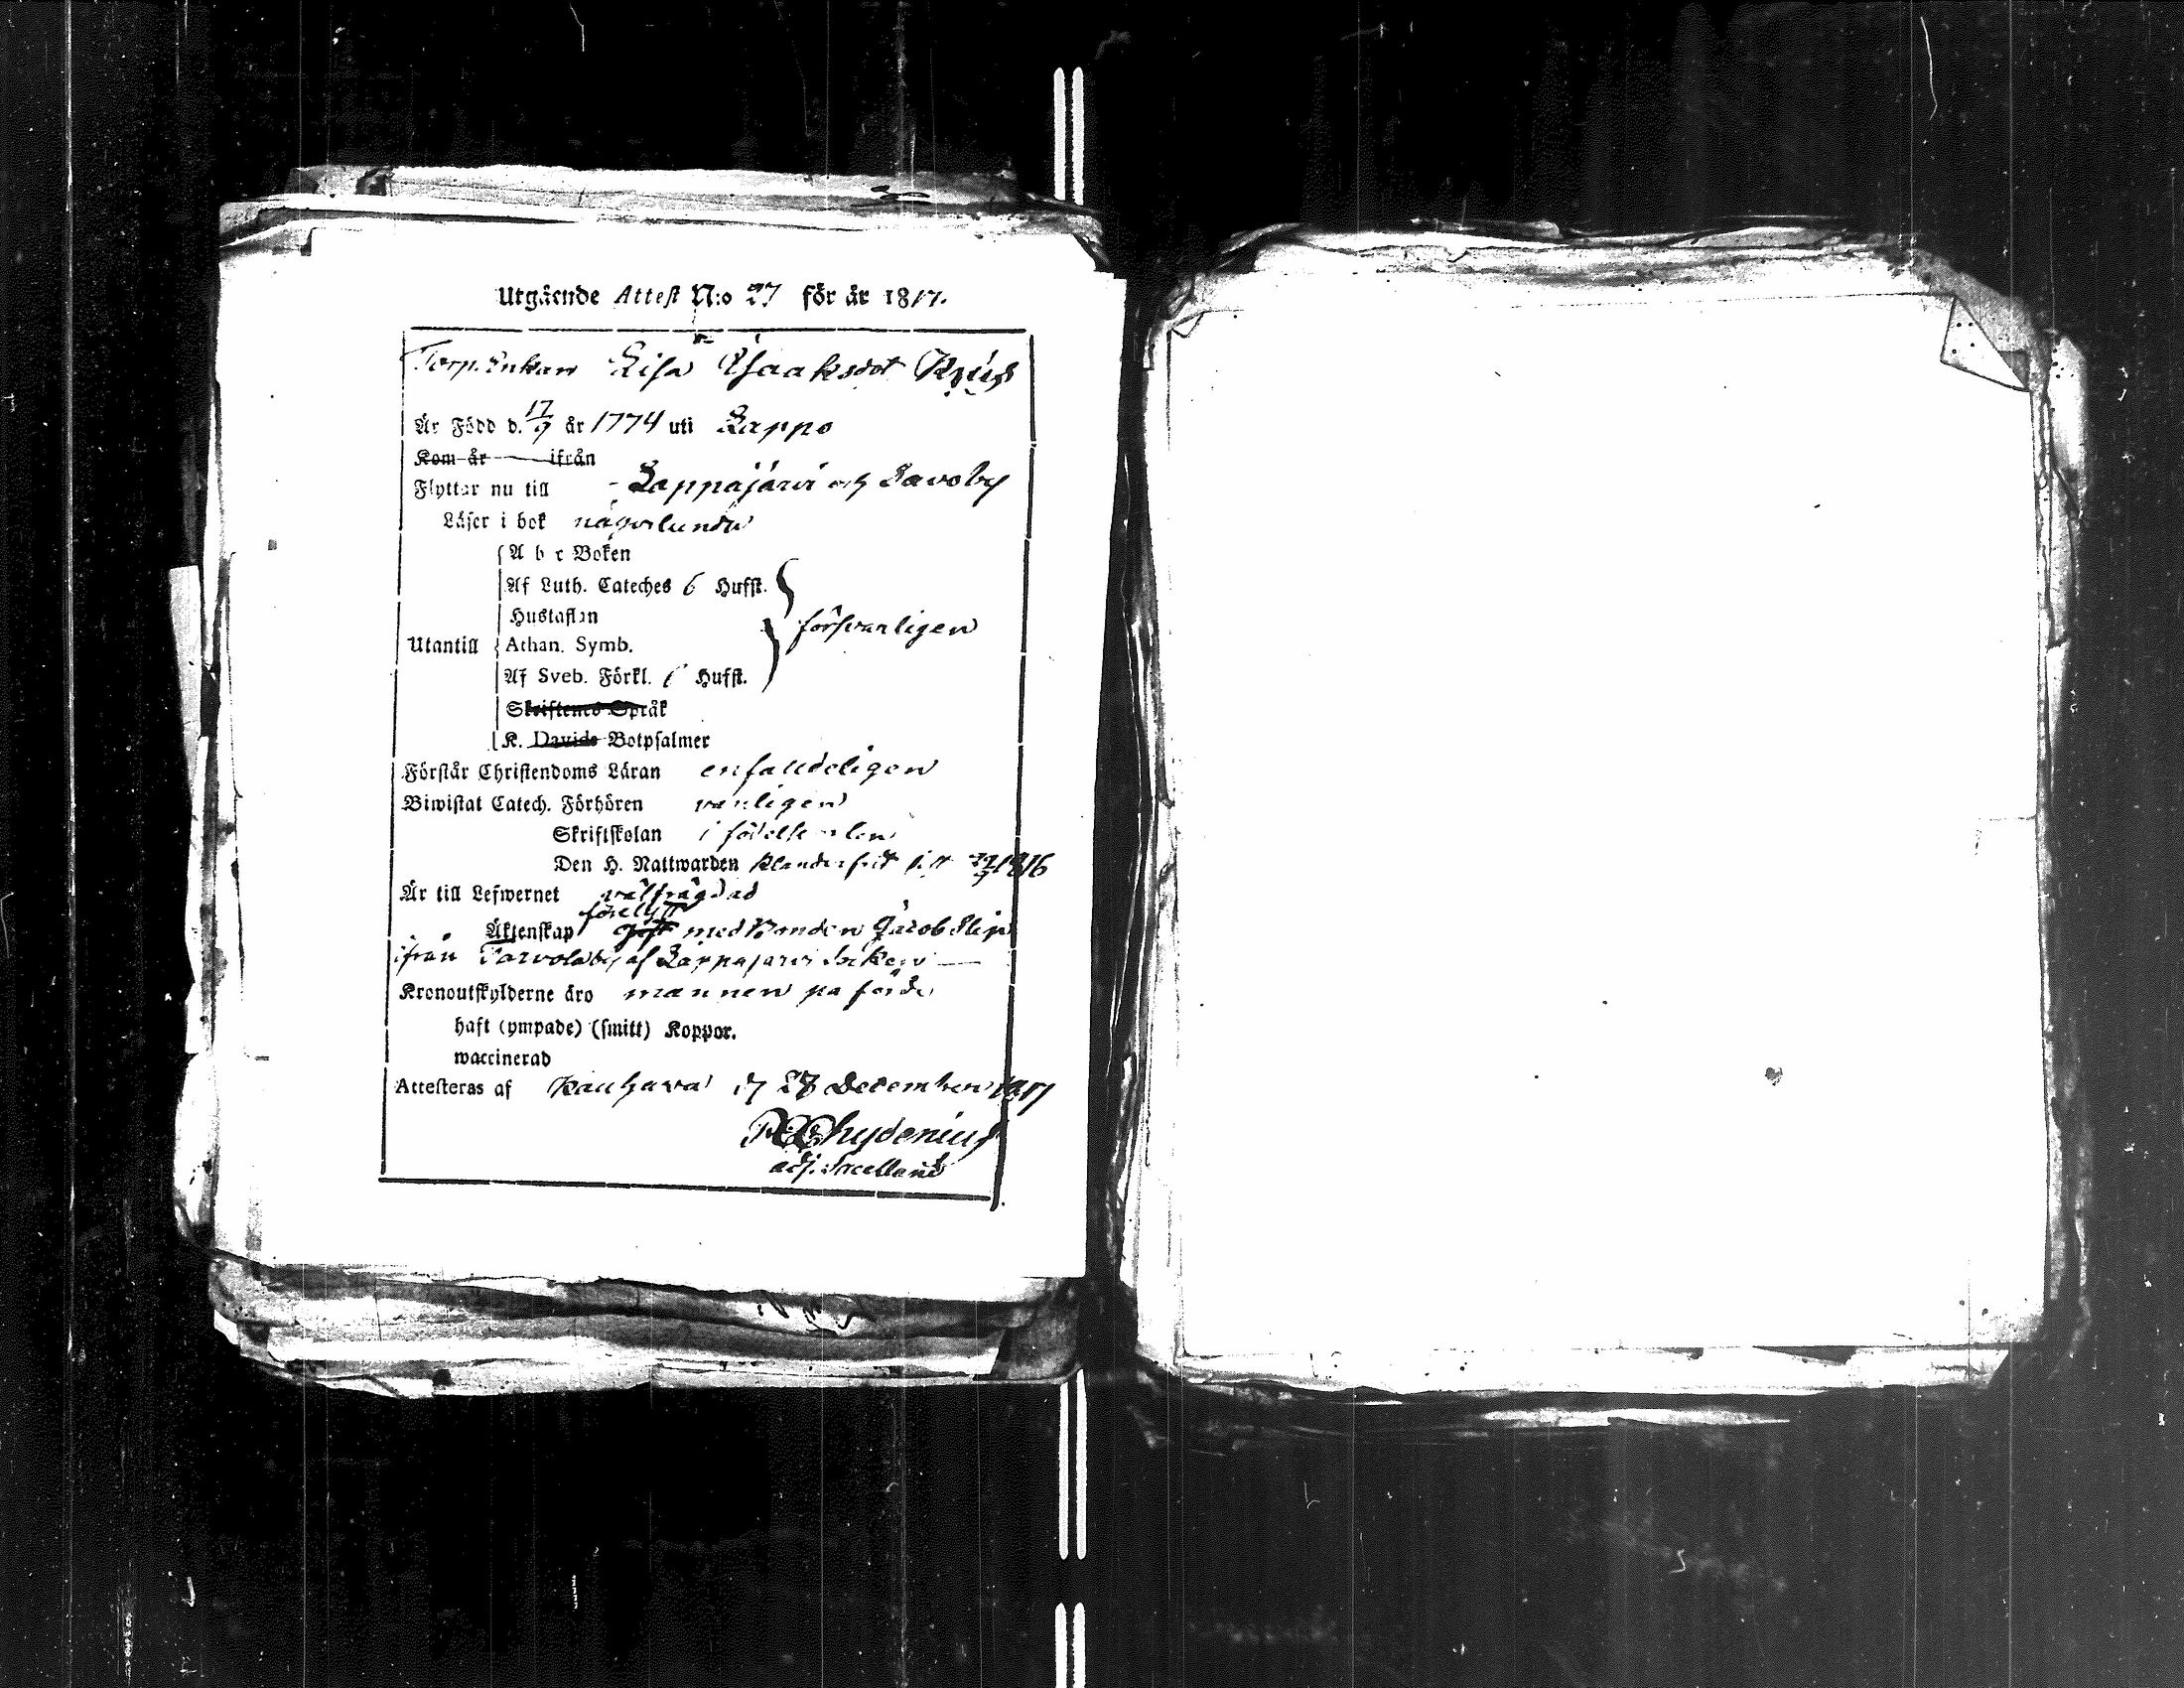 Utgående Attest N:o 27 för år 1817.
Torp. Enkan Lisa Isaaksdot
Är Född d. 17/9 år 1774 uti Lappo
Kom år — ifrån
Flyttar nu till Lappajärvi och Savoby
Läser i bok någorlunda
A b c Boken
Af Luth. Cateches 6 Hufst.
Hustaflan
försvarligen
Utantill Athan. Symb.
Af Sveb. Förkl. 6 Hufst.
Skriftenes Språk
K. Davids Botpsalmer
Förstår Christendoms Läran enfaldeligen
Biwistat Catech. Förhören vanligen
Skriftskolan i
Den H. Nattwarden klanderfritt sist 1816
Är till Lefwernet välfrägdad
förelyst
Äktenskap gift med Bonden Jacob
ifrån Tarvola by af Lappajärvi Socken —
Kronoutskylderne äro mannen påförde
haft (ympade) (smitt) Koppor.
waccinerad
Attesteras af Kauhava d 28 December 1817
Chydenius
adj. Sacelland